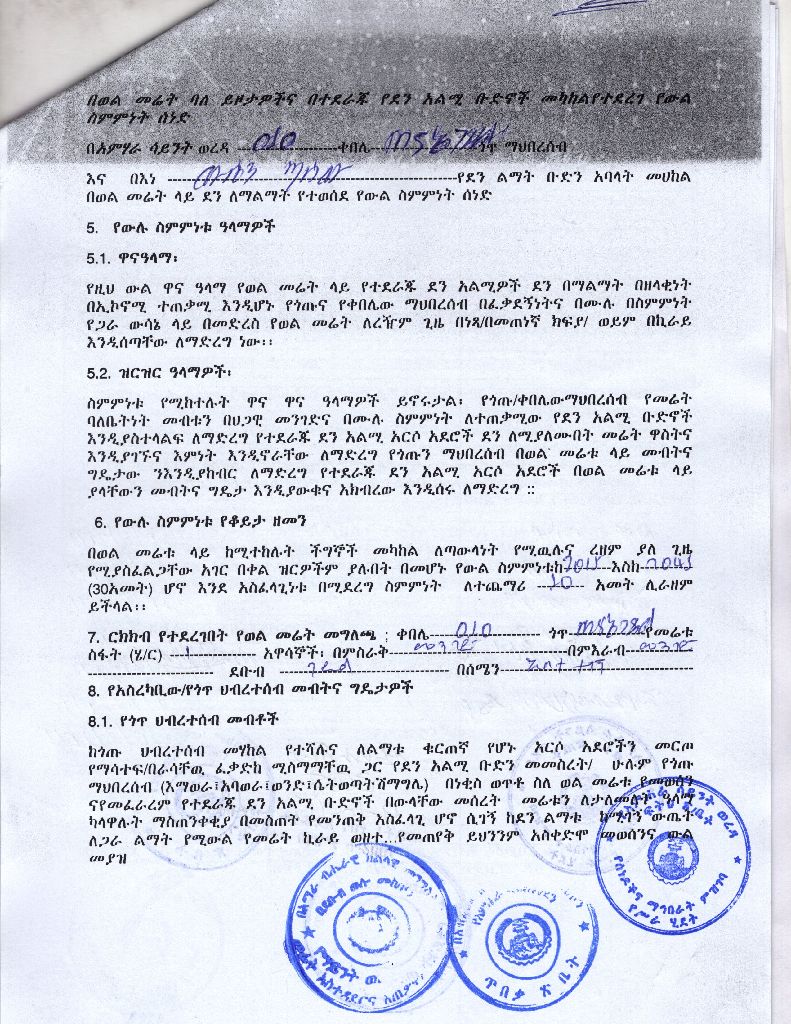 በወል መሬት ባለ ይዞታዎችና በተደራጁ የደን አልሚ ቡድኖች መካከልየተደረገ የውል
ስምምነት ሰነድ
በአምሃራ ሳይንት ወረዳ ---- 010 ----ቀበሌ---- ጎጥ ማህበረሰብ
እና በእነ ---- ----የደን ልማት ቡድን አባላት መሀከል
በወል መሬት ላይ ደን ለማልማት የተወሰደ የውል ስምምነት ሰነድ
5. የውሉ ስምምነቱ ዓላማዎች
5.1. ዋናዓላማ፡
የዚህ ውል ዋና ዓላማ የወል መሬት ላይ የተደራጁ ደን አልሚዎች ደን በማልማት በዘላቂነት
በኢኮኖሚ ተጠቃሚ እንዲሆኑ የጎጡና የቀበሌው ማህበረሰብ በፈቃደኝነትና በሙሉ በስምምነት
የጋራ ውሳኔ ላይ በመድረስ የወል መሬት ለረዥም ጊዜ በነጻ/በመጠነኛ ክፍያ/ ወይም በኪራይ
እንዲሰጣቸው ለማድረግ ነው፡፡
5.2. ዝርዝር ዓላማዎች፡
ስምምነቱ የሚከተሉት ዋና ዋና ዓላማዎች ይኖሩታል፡ የጎጡ/ቀበሌውማህበረሰብ የመሬት
ባለቤትነት መብቱን በህጋዊ መንገድና በሙሉ ስምምነት ለተጠቃሚው የደን አልሚ ቡድኖች
እንዲያስተላልፍ ለማድረግ የተደራጁ ደን አልሚ አርሶ አደሮች ደን ለሚያለሙበት መሬት ዋስትና
እንዲያገኙና እምነት እንዲኖራቸው ለማድረግ የጎጡን ማህበረሰብ በወል መሬቱ ላይ መብትና
ግዴታው ንእንዲያከብር ለማድረግ የተደራጁ ደን አልሚ አርሶ አደሮች በወል መሬቱ ላይ
ያላቸውን መብትና ግዴታ እንዲያውቁና አክብረው እንዲሰሩ ለማድረግ ፡፡
6. የውሉ ስምምነቱ የቆይታ ዘመን
በወል መሬቱ ላይ ከሚተከሉት ችግኞች መካከል ለጣውላነት የሚዉሉና ረዘም ያለ ጊዜ
የሚያስፈልጋቸው አገር በቀል ዝርዎችም ያሉበት በመሆኑ የውል ስምምነቱከ---- እስከ----
(30አመት) ሆኖ እንደ አስፈላጊነቱ በሚደረግ ስምምነት ለተጨማሪ --10-- አመት ሊራዘም
ይችላል፡፡
7. ርክክብ የተደረገበት የወል መሬት መግለጫ ; ቀበሌ---- 010 ---- ጎጥ---- የመሬቱ
ስፋት (ሄ/ር) ---1---- አዋሳኞች፡ በምስራቅ---- መንገድ ----በምእራብ-- መንገድ
---- ደቡብ ---- ገደል ---- በሰሜን---- ----
8. የአስረካቢው/የጎጥ ህብረተሰብ መብትና ግዴታዎች
8.1. የጎጥ ህብረተሰብ መብቶች
ከጎጡ ህብረተሰብ መሃከል የተሻሉና ለልማቱ ቁርጠኛ የሆኑ አርሶ አደሮችን መርጦ
የማሳተፍ/በራሳቸዉ ፈቃድከ ሚስማማቸዉ ጋር የደን አልሚ ቡድን መመስረት/ ሁሉም የጎጡ
ማህበረሰብ (እማወራ፣አባወራ፣ወንድ፣ሴትወጣትሽማግሌ) በነቂስ ወጥቶ ስለ ወል መሬቱ የመወሰን
ናየመፈራረም የተደራጁ ደን አልሚ ቡድኖች በውላቸው መሰረት መሬቱን ለታለመለት ዓላማ
ካላዋሉት ማስጠንቀቂያ በመስጠት የመንጠቅ አስፈላጊ ሆኖ ሲገኝ ከደን ልማቱ ከሚገኝ ውጤት
ለጋራ ልማት የሚውል የመሬት ኪራይ ወዘተ...የመጠየቅ ይህንንም አስቀድሞ መወሰንና ውል
መያዝ
ጥበቃ ጽ ቤት
የሰነዶችና ማኅበራት ምዝገባ
የሥራ ሂደት